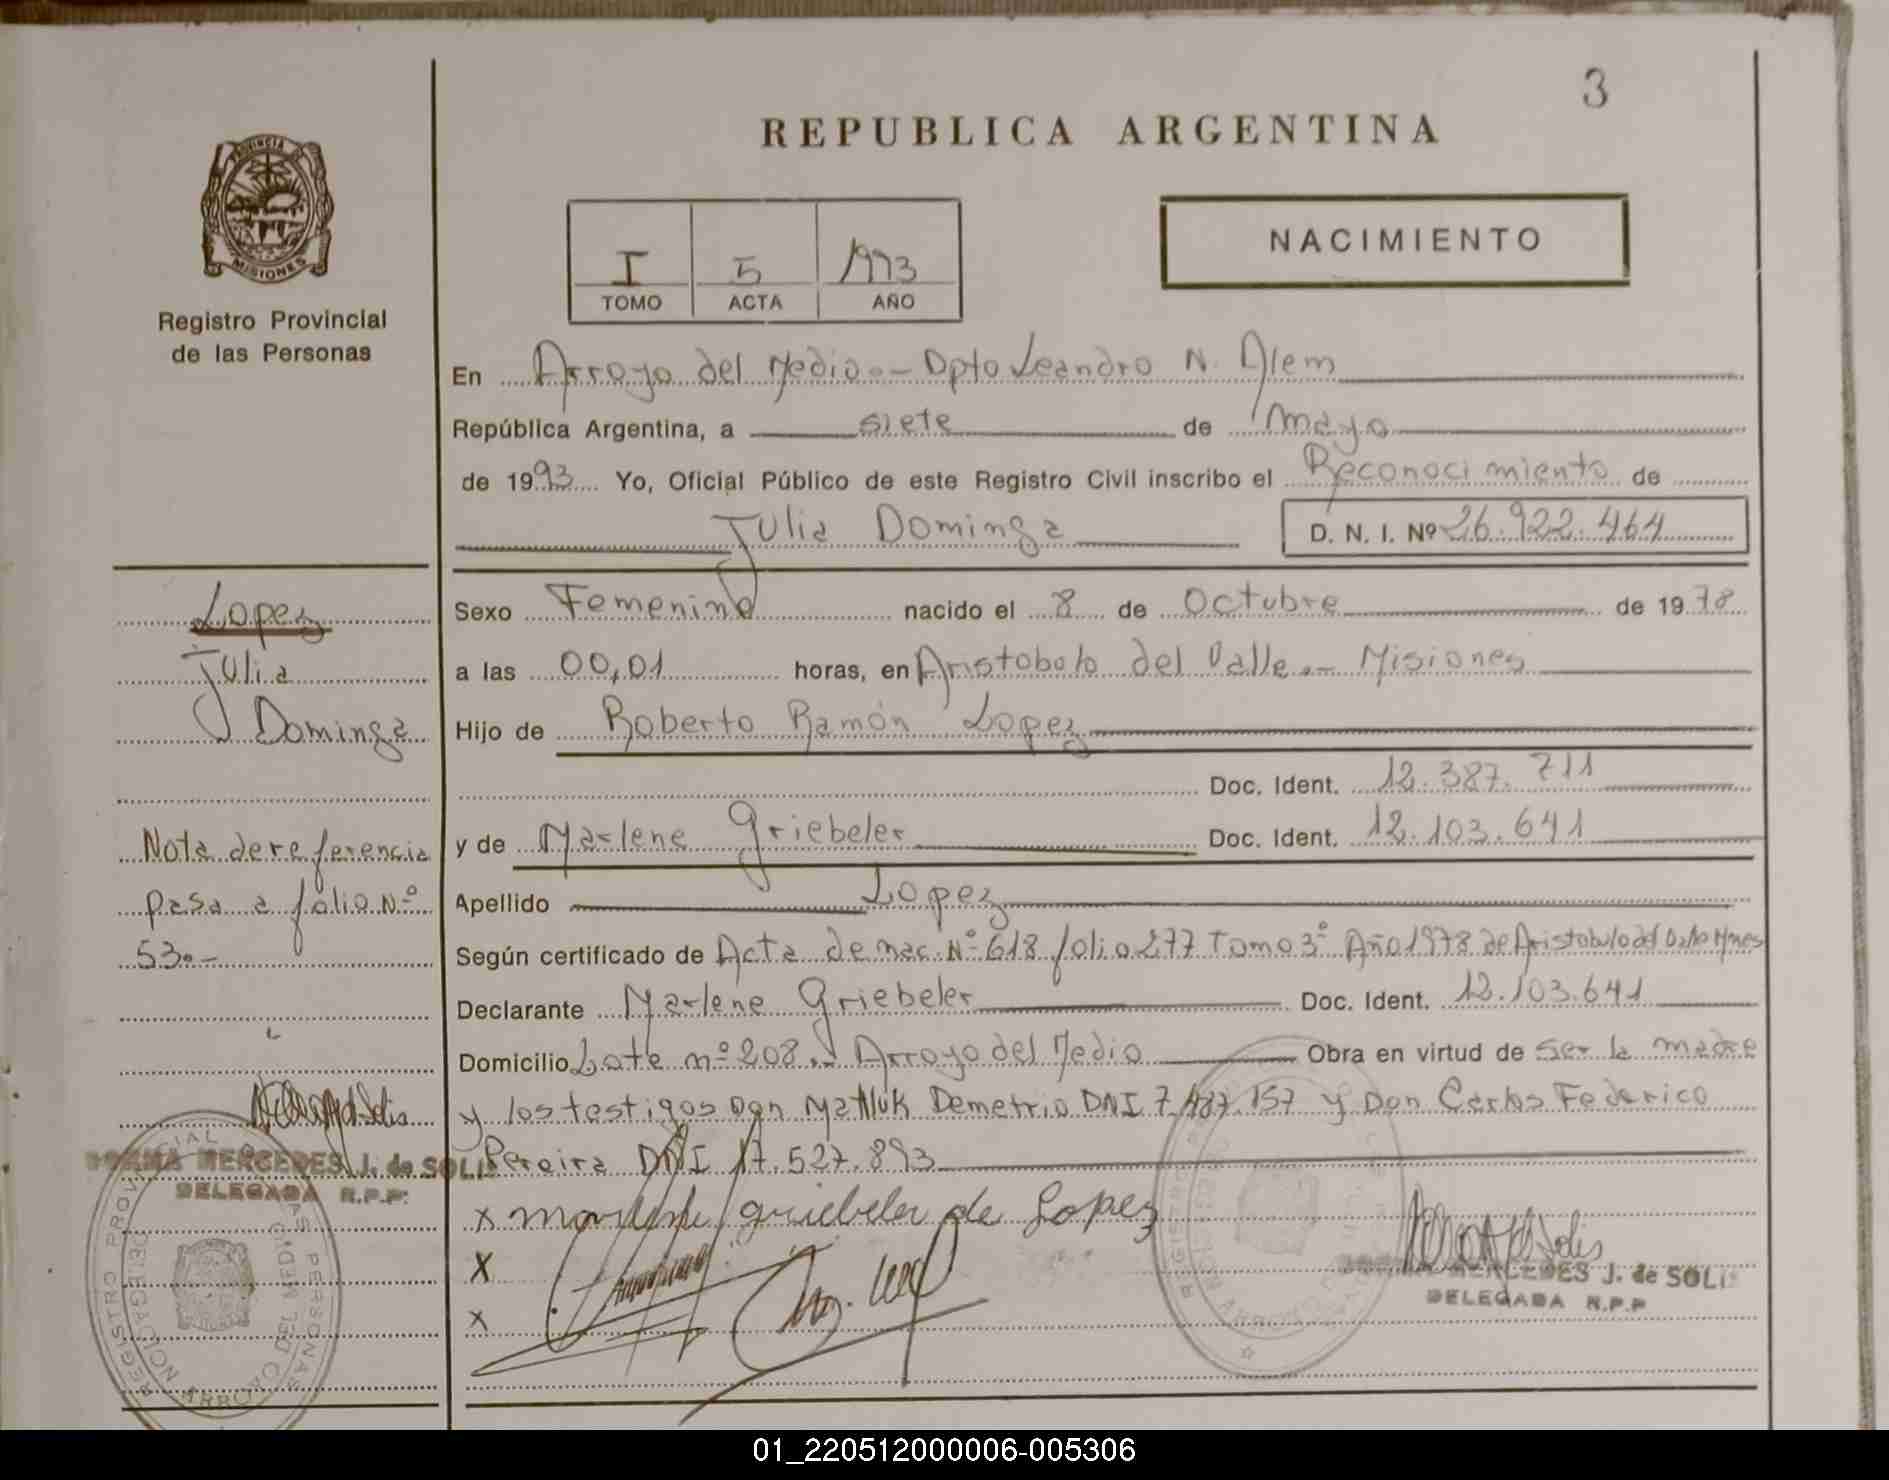 3
REPUBLICA ARGENTINA
PROVINCIA DE
MISIONES
Registro Provincial
de las Personas
I 5 1993
TOMO ACTA AÑO
NACIMIENTO
En Arroyo del Medio.- Dpto Leandro N. Alem
República Argentina, a siete de mayo
de 1993 Yo, Oficial Público de este Registro Civil inscribo el Reconocimiento de
Julia Dominga D. N. I. Nº 26.922.464
Lopez
Julia
Dominga
Nota de referencia
pasa a folio Nº
53.-
Sexo Femenino nacido el 8 de Octubre de 1978
a las 00,01 horas, en Aristobolo del Valle.- Misiones
Hijo de Roberto Ramón Lopez
Doc. Ident. 12.387.711
y de Marlene Griebeler Doc. Ident. 12.103.641
Apellido Lopez
Según certificado de Acta de nac. Nº 618 folio 277 Tomo 3º Año 1978 de Aristobulo del Valle Mnes
Declarante Marlene Griebeler Doc. Ident. 12.103.641
Domicilio Lote nº 208.- Arroyo del Medio Obra en virtud de ser la madre
y los testigos Don Demetrio DNI 7.487.157 y Don Carlos Federico
Pereira DNI 17.527.893
x griebeler de Lopez
x
x
NORMA MERCEDES J. de SOLIS
DELEGADA R.P.P.
NORMA MERCEDES J. de SOLIS
DELEGADA R.P.P
REGISTRO PROVINCIAL DE LAS PERSONAS
DELEGACION ARROYO DEL MEDIO
01_220512000006-005306